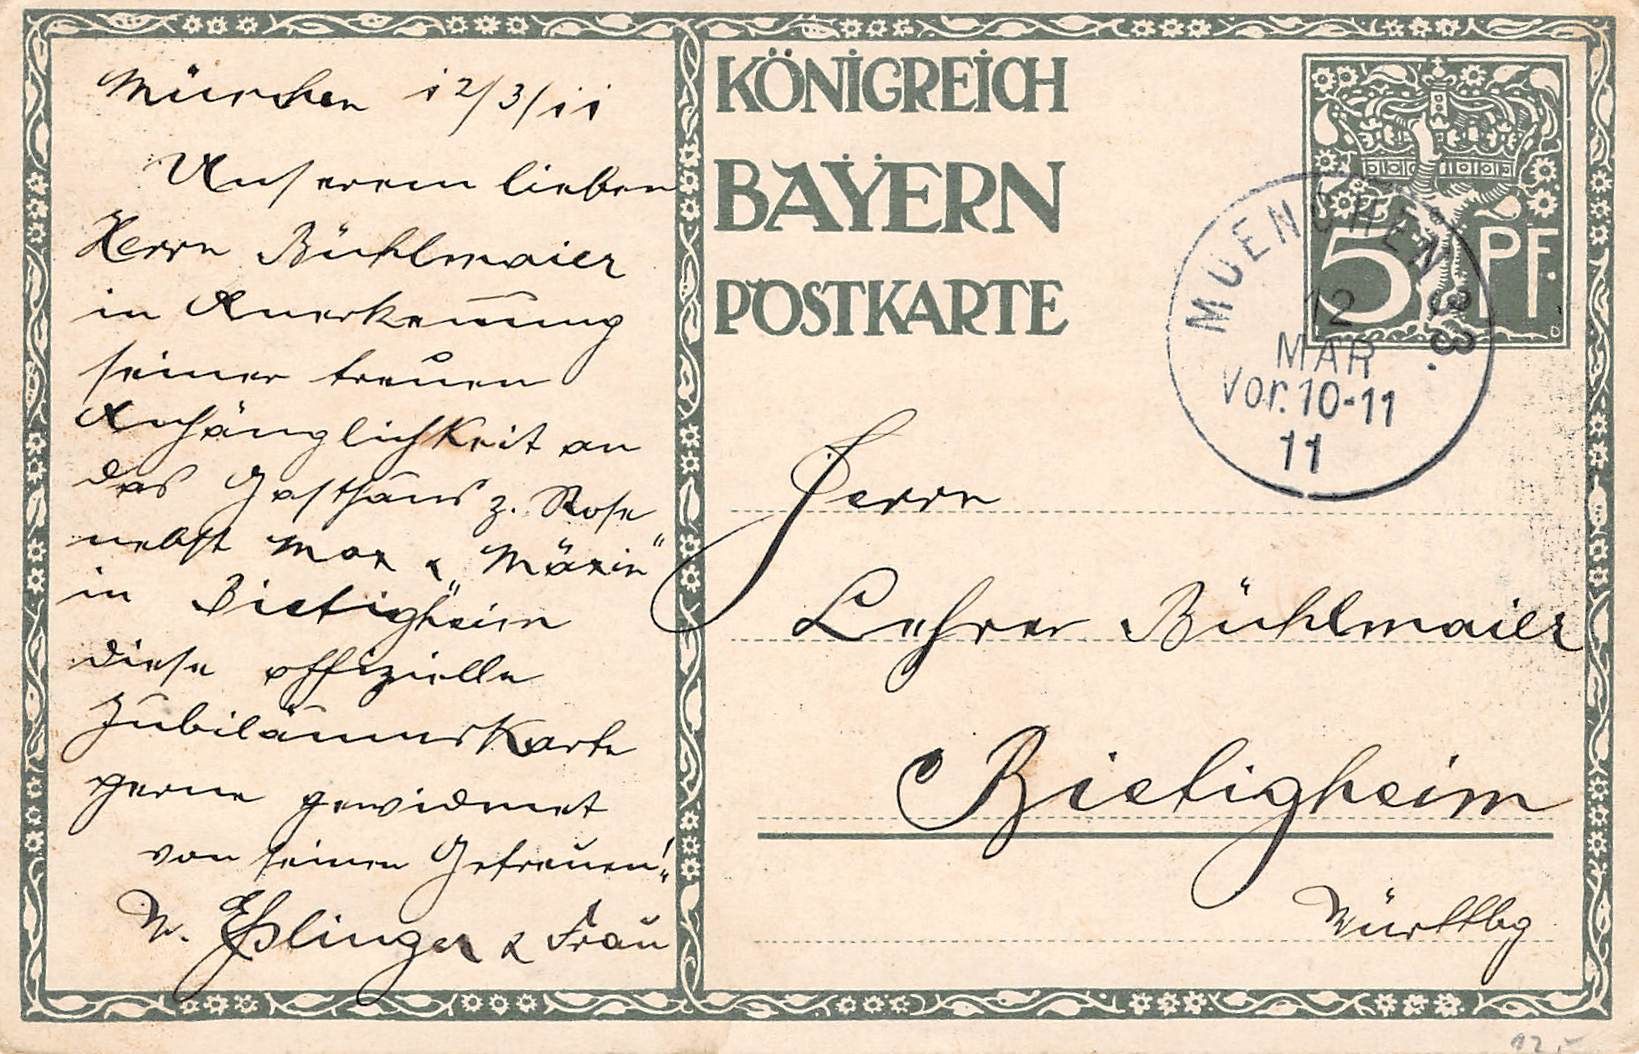 München 12/3/11
Unserem lieben
Herrn Bühlmaier
in Anerkennung
seiner treuen
Anhänglichkeit an
das Gasthaus z. Rose
nebst Max & "Maxin"
in Bietigheim
diese offizielle
Jubiläumskarte
gerne gewidmet
von seinen Getreuen!
W. Eßlinger & Frau
KÖNIGREICH
BAYERN
POSTKARTE
5 PF.
MUENCHEN 33.
12
MAR
Vor. 10-11
11
Herrn
Lehrer Bühlmaier
Bietigheim
Württbg
12,-